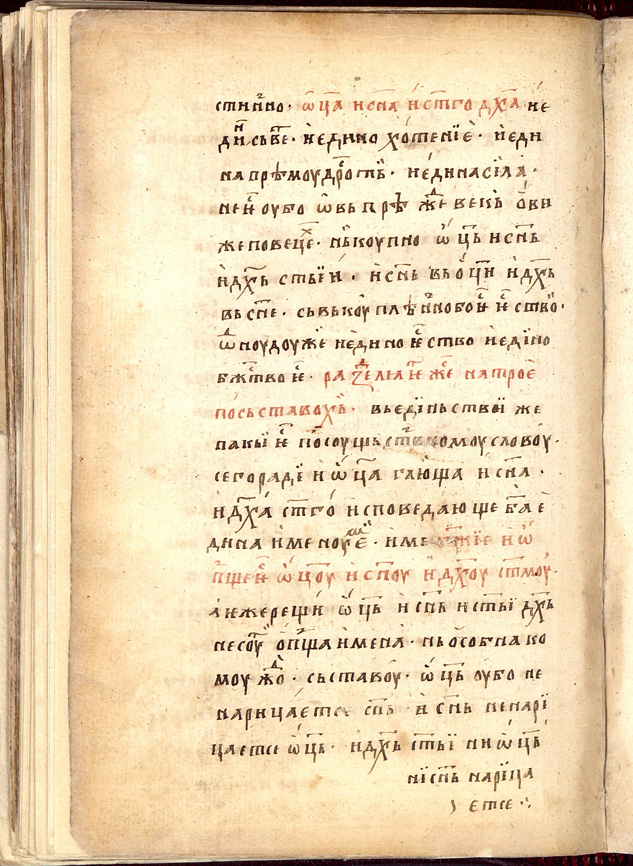 стин̾но · ѿц҃а и сн҃а и ст҃го дх҃а не
дин̾ съвѣ · неди́но хо́тенїѐ · не́ди
на прѣмоудро́ть · не́дина сїла ·
не н̾ оубо ѿ въпрѣ же векъ ѻ҆ви
же повеце · нь коупно ѿц҃ь и сн҃ь
и дх҃ъ ст҃ы и · и сн҃ъ въ ѻ҆ц҃и и дх҃ъ
въ сн҃е · съвъкоу плѣ н̾но бо н̾ ю҃ ство ·
ѿноудоуже́ неди но ю҃ ство не ди́но
бж҃тво ѥ · раздѣ лꙗ ѥ же на троѐ
по съставохъ · въ едїньствои же
пакы ѥ по соущьств комоу словоу ·
сего ради и ѿц҃а гл҃юща и сн҃а ·
и дх҃а ст҃го исповедающе б҃а ѐ
дина именоуѐ · име жїе и ѿ
п̾ще ѥ ѿц҃оу и сн҃оу и дх҃оу ст҃моу ·
а иже рещи ѿц҃ь и сн҃ь и ст҃ы дх҃ъ
не соу ѻп̾ща имена · нь ѻсобна ко
моужо · съставоу · ѿц҃ь оубо не
нарицает се сн҃ь · и сн҃ь не нари
цает се ѿц҃ь · и дх҃ъ ст҃ы ни ѿц҃ь
ни сн҃ъ нарица
ет се ·:·